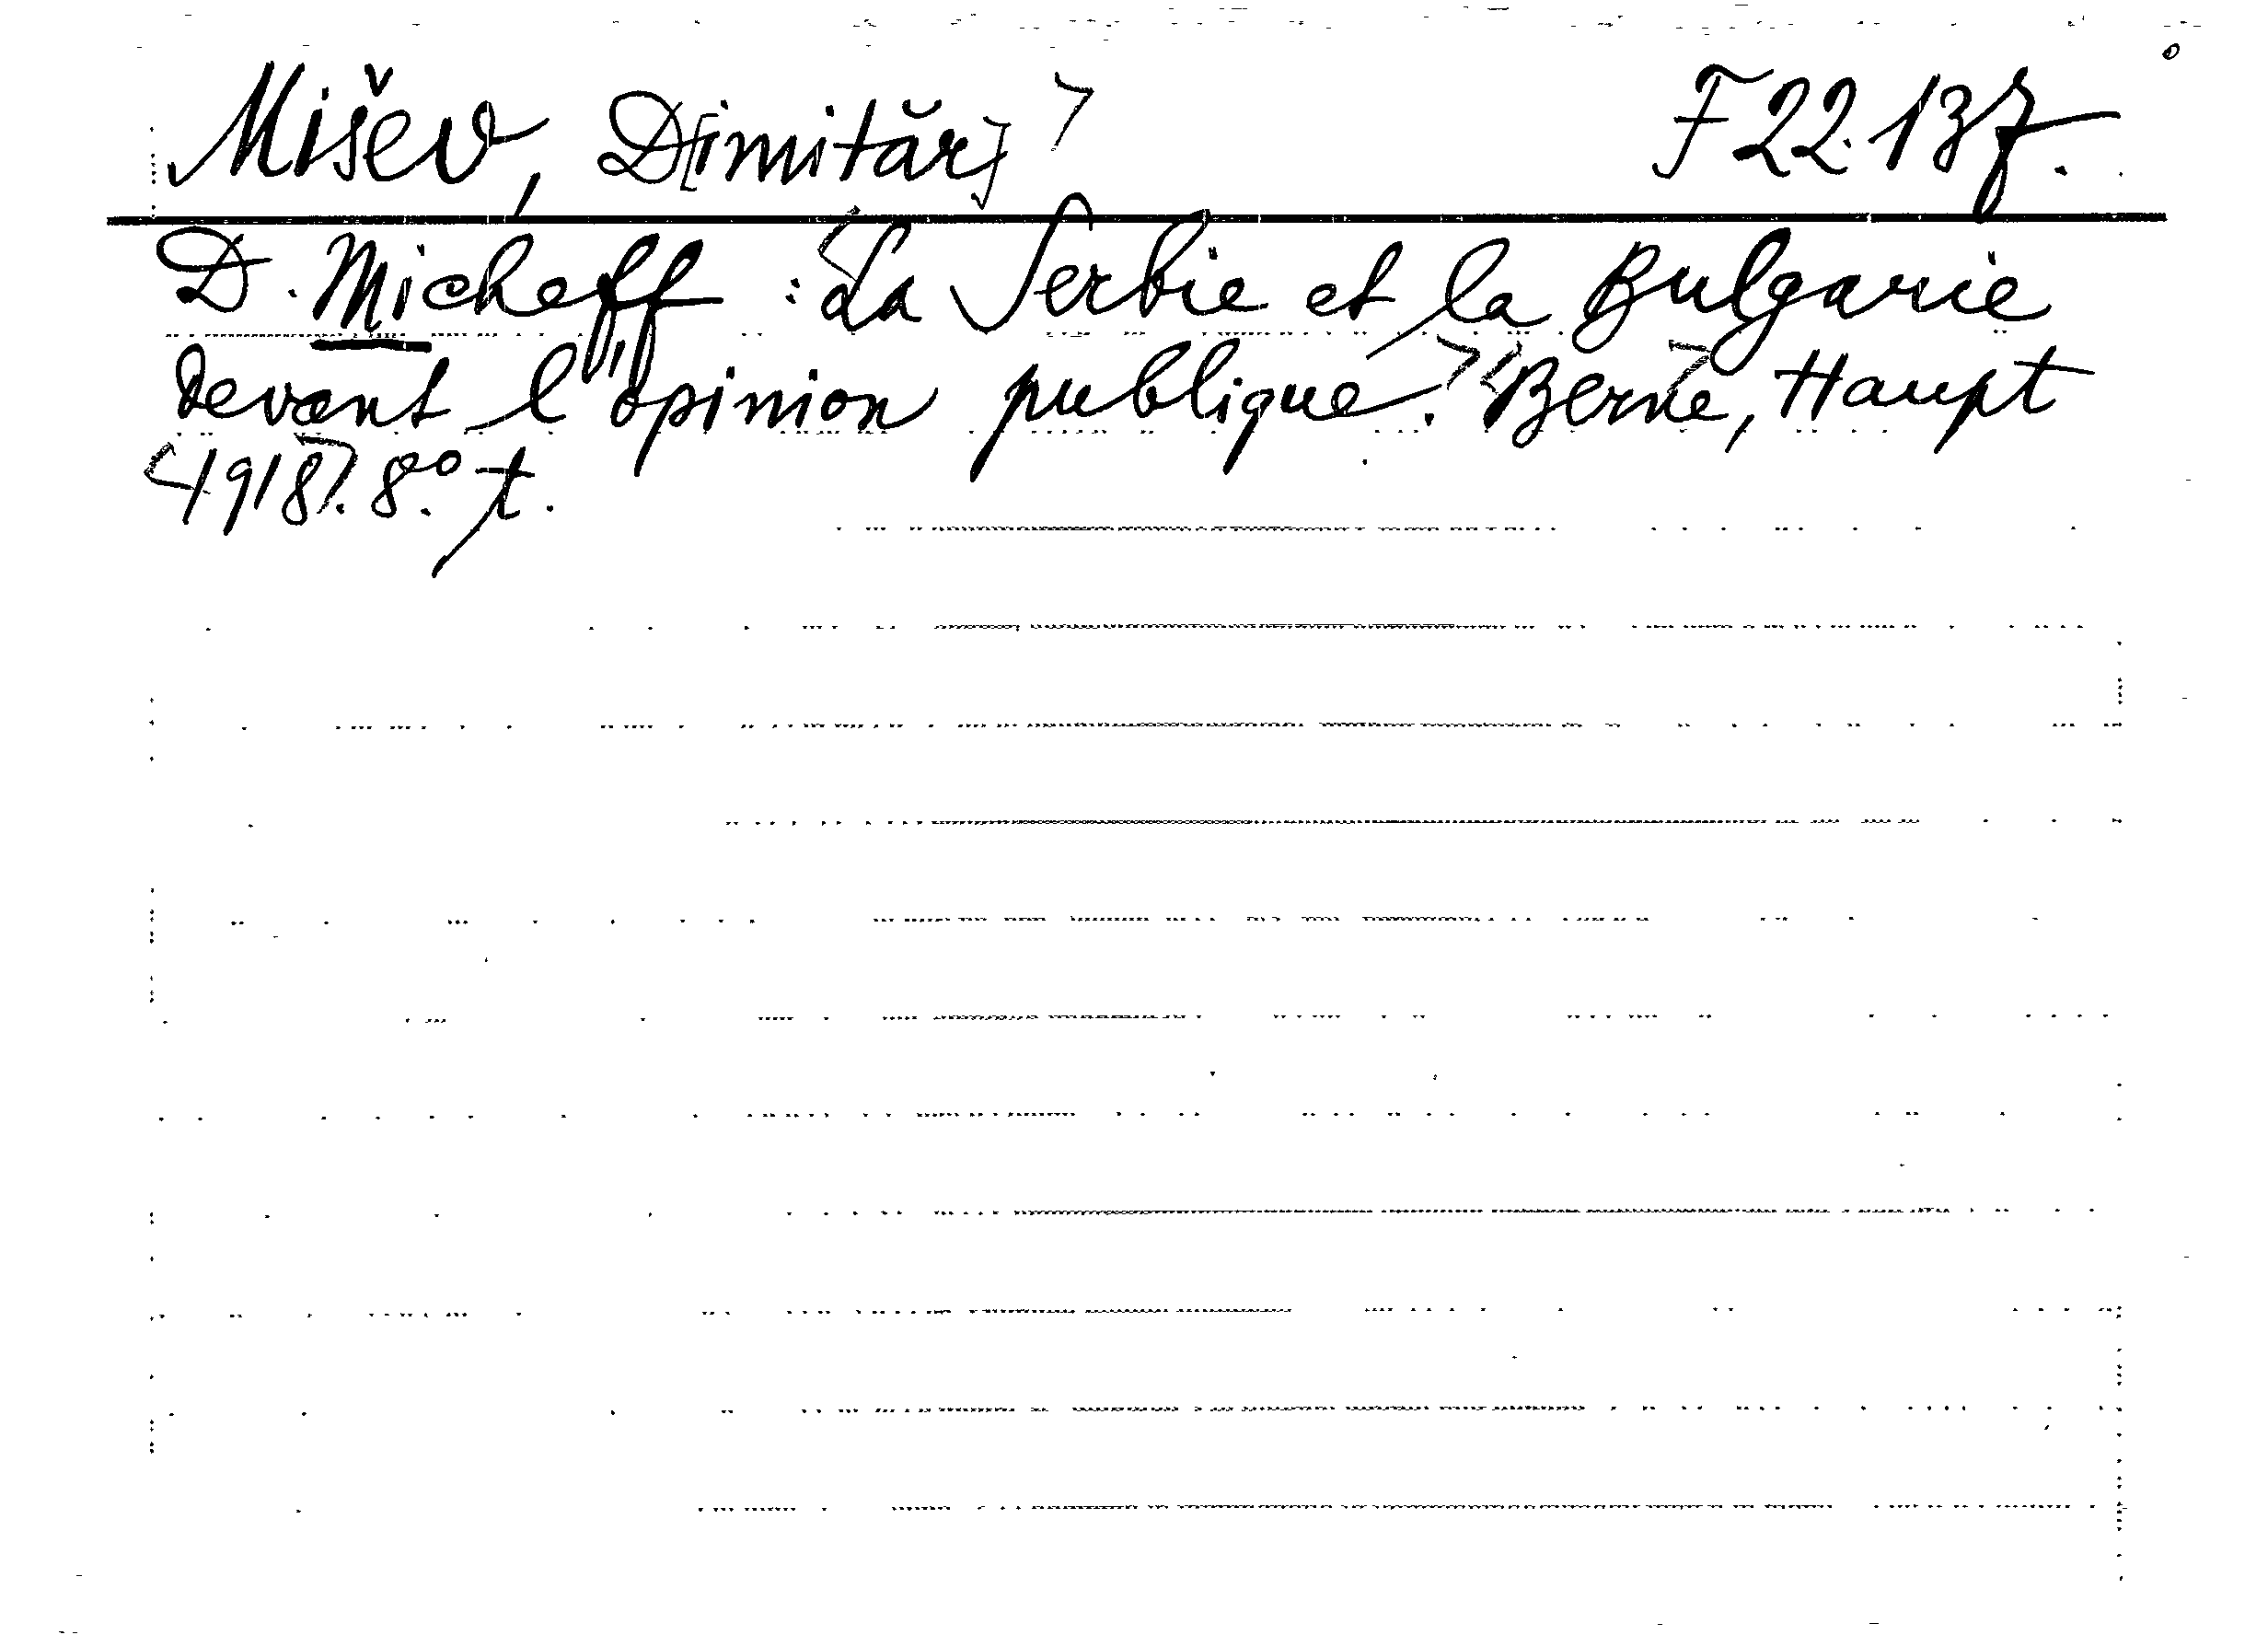 Mišev, D[imităr] F 22.137.
D. Micheff : La Serbie et la Bulgarie
devant l'opinion publique. Berne, Haupt
1918. 8° t.